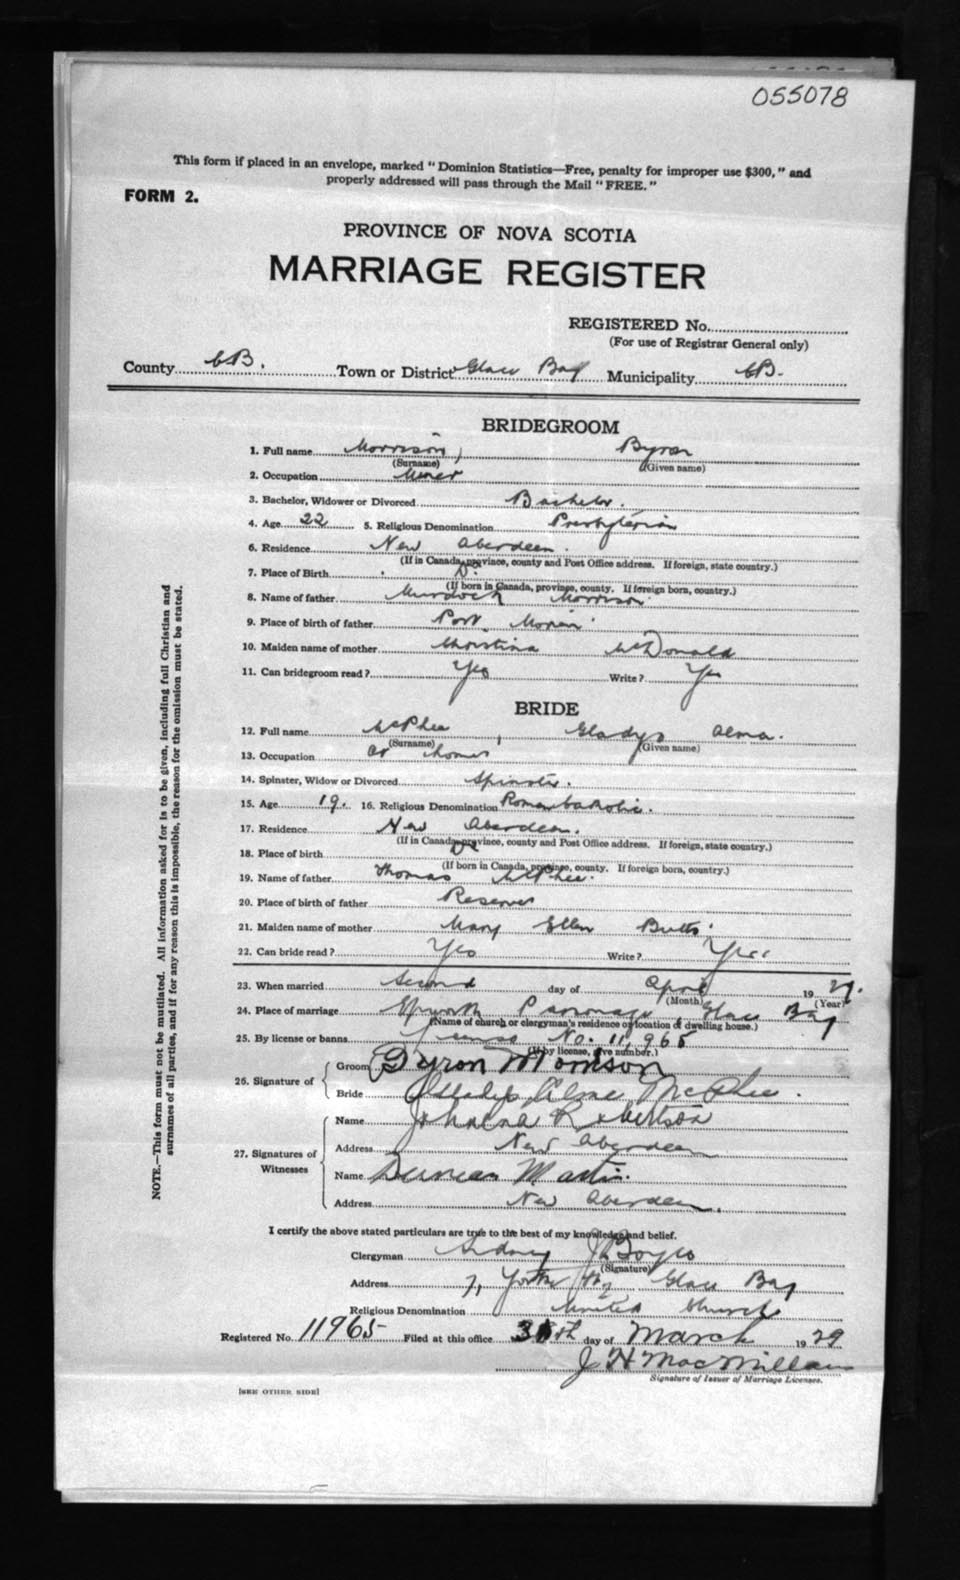 055078
This form if placed in an envelope, marked "Dominion Statistics—Free, penalty for improper use $300," and
properly addressed will pass through the Mail "FREE."
FORM 2.
PROVINCE OF NOVA SCOTIA
MARRIAGE REGISTER
REGISTERED No.
(For use of Registrar General only)
County C.B. Town or District Glace Bay Municipality C.B.
BRIDEGROOM
1. Full name Morrison, Byron
(Surname) (Given name)
2. Occupation Miner
3. Bachelor, Widower or Divorced Bachelor.
4. Age 22 5. Religious Denomination Presbyterian
6. Residence New Aberdeen.
(If in Canada, province, county and Post Office address. If foreign, state country.)
7. Place of Birth Do
(If born in Canada, province, county. If foreign born, country.)
8. Name of father Murdock Morrison
9. Place of birth of father Port Morien
10. Maiden name of mother Christina McDonald
11. Can bridegroom read? Yes Write? Yes
BRIDE
12. Full name McPhee, Gladys Alma.
(Surname) (Given name)
13. Occupation At Home
14. Spinster, Widow or Divorced Spinster.
15. Age 19. 16. Religious Denomination Roman Catholic.
17. Residence New Aberdeen.
(If in Canada, province, county and Post Office address. If foreign, state country.)
18. Place of birth Do
(If born in Canada, province, county. If foreign born, country.)
19. Name of father Thomas McPhee.
20. Place of birth of father Reserve
21. Maiden name of mother Mary Ellen Butts
22. Can bride read? Yes Write? Yes
23. When married Second day of April 1929.
(Month) (Year)
24. Place of marriage Epworth Parsonage, Glace Bay
(Name of church or clergyman's residence or location of dwelling house.)
25. By license or banns License No. 11,965
(If by license, give number.)
26. Signature of
Groom Byron Morrison
Bride Gladys Alma McPhee.
27. Signatures of Witnesses
Name Johnena Robertson
Address New Aberdeen
Name Duncan Martin.
Address New Aberdeen.
I certify the above stated particulars are true to the best of my knowledge and belief.
Clergyman Sidney J. Boyce
(Signature)
Address 7, York St, Glace Bay
Religious Denomination United Church
Registered No. 11965 Filed at this office 30th day of March 1929
J H MacMillan
Signature of Issuer of Marriage Licenses.
[SEE OTHER SIDE]
NOTE.—This form must not be mutilated. All information asked for is to be given, including full Christian and
surnames of all parties, and if for any reason this is impossible, the reason for the omission must be stated.